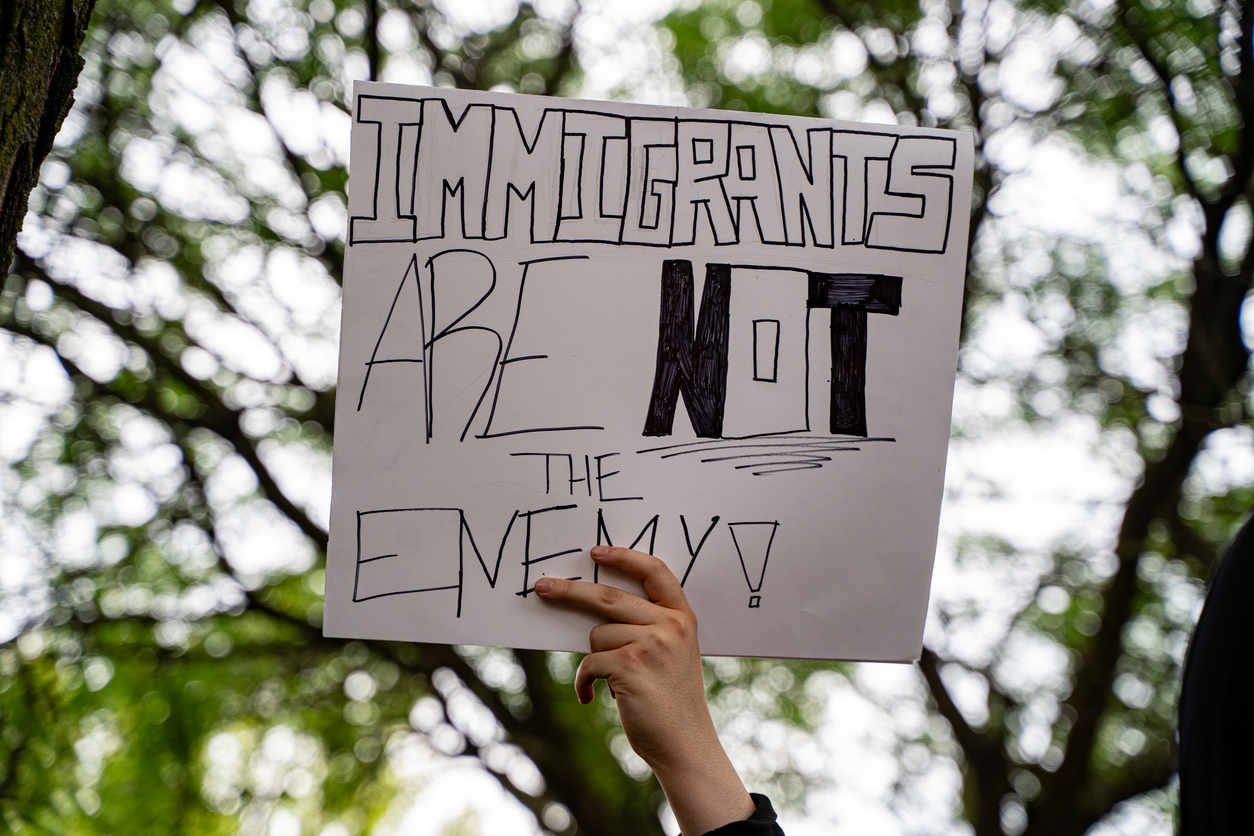 IMMIGRANTS
ARE NOT
THE
ENEMY!